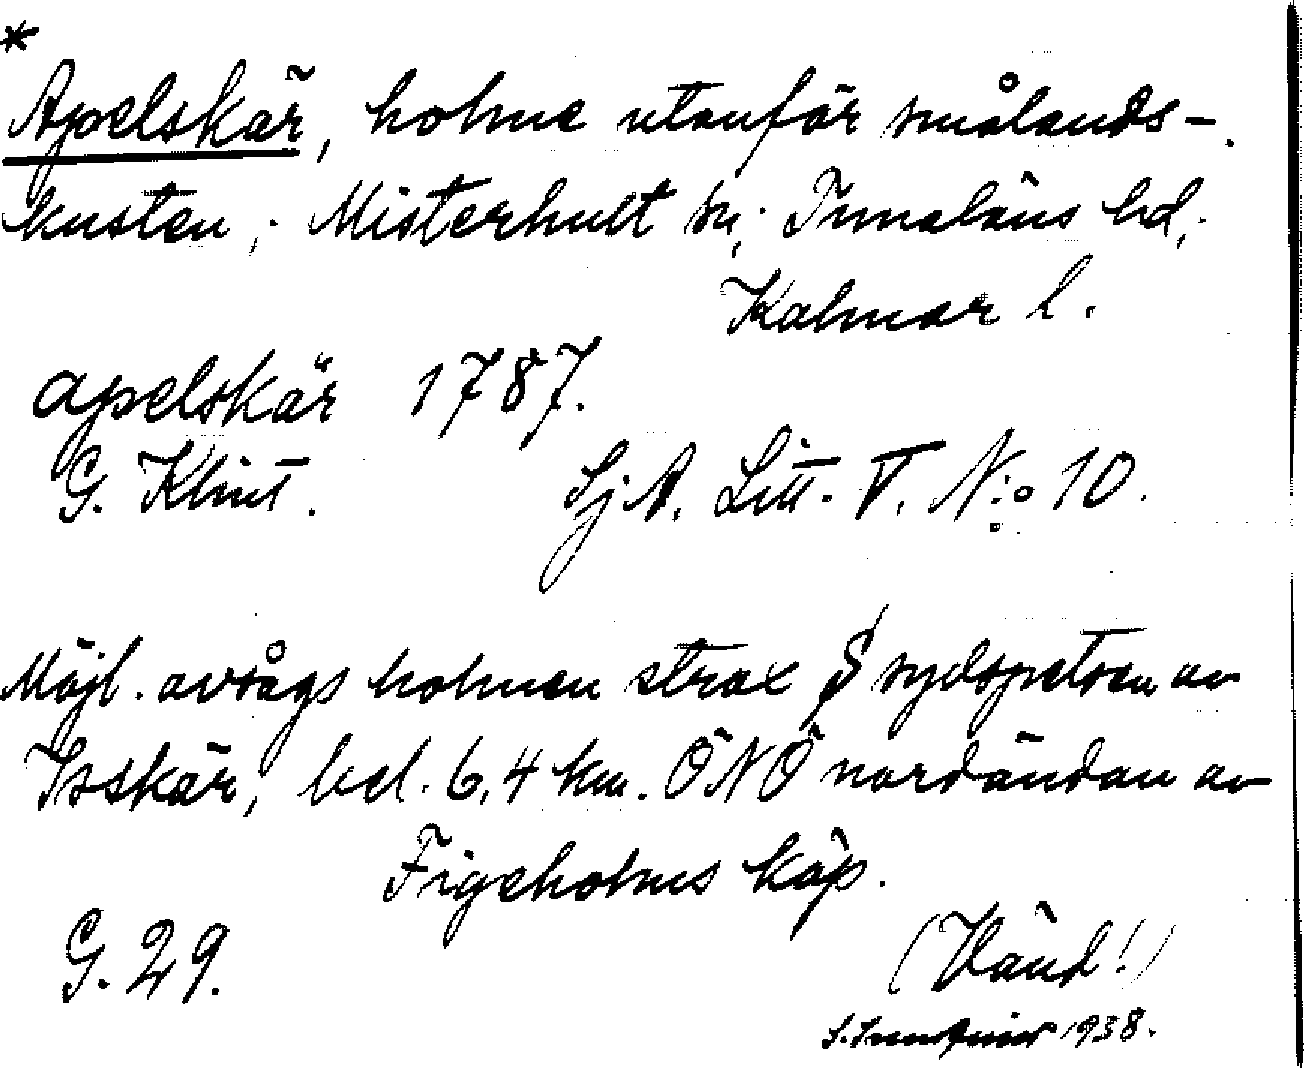 *
Apelskär, holme utanför smålands-
kusten; Misterhult sn; Tunaläns hd;
Kalmar l.
apelskär 1787.
G. Klint. SjA. Litt. V. N:o 10.
Möjl. avsågs holmen strax S sydspetsen av
Isskär, bel. 6,4 km. ÖNÖ nordändan av
Figeholms köp.
G. 29.
(Vänd!)
1938.